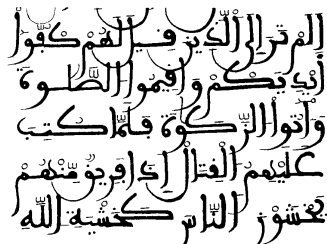 ألم تر إلى الذين قيل لهم كفوا
أيديكم وأقيموا الصلوة
وآتوا الزكوة فلما كتب
عليهم القتال إذا فريق منهم
يخشون الناس كخشية الله